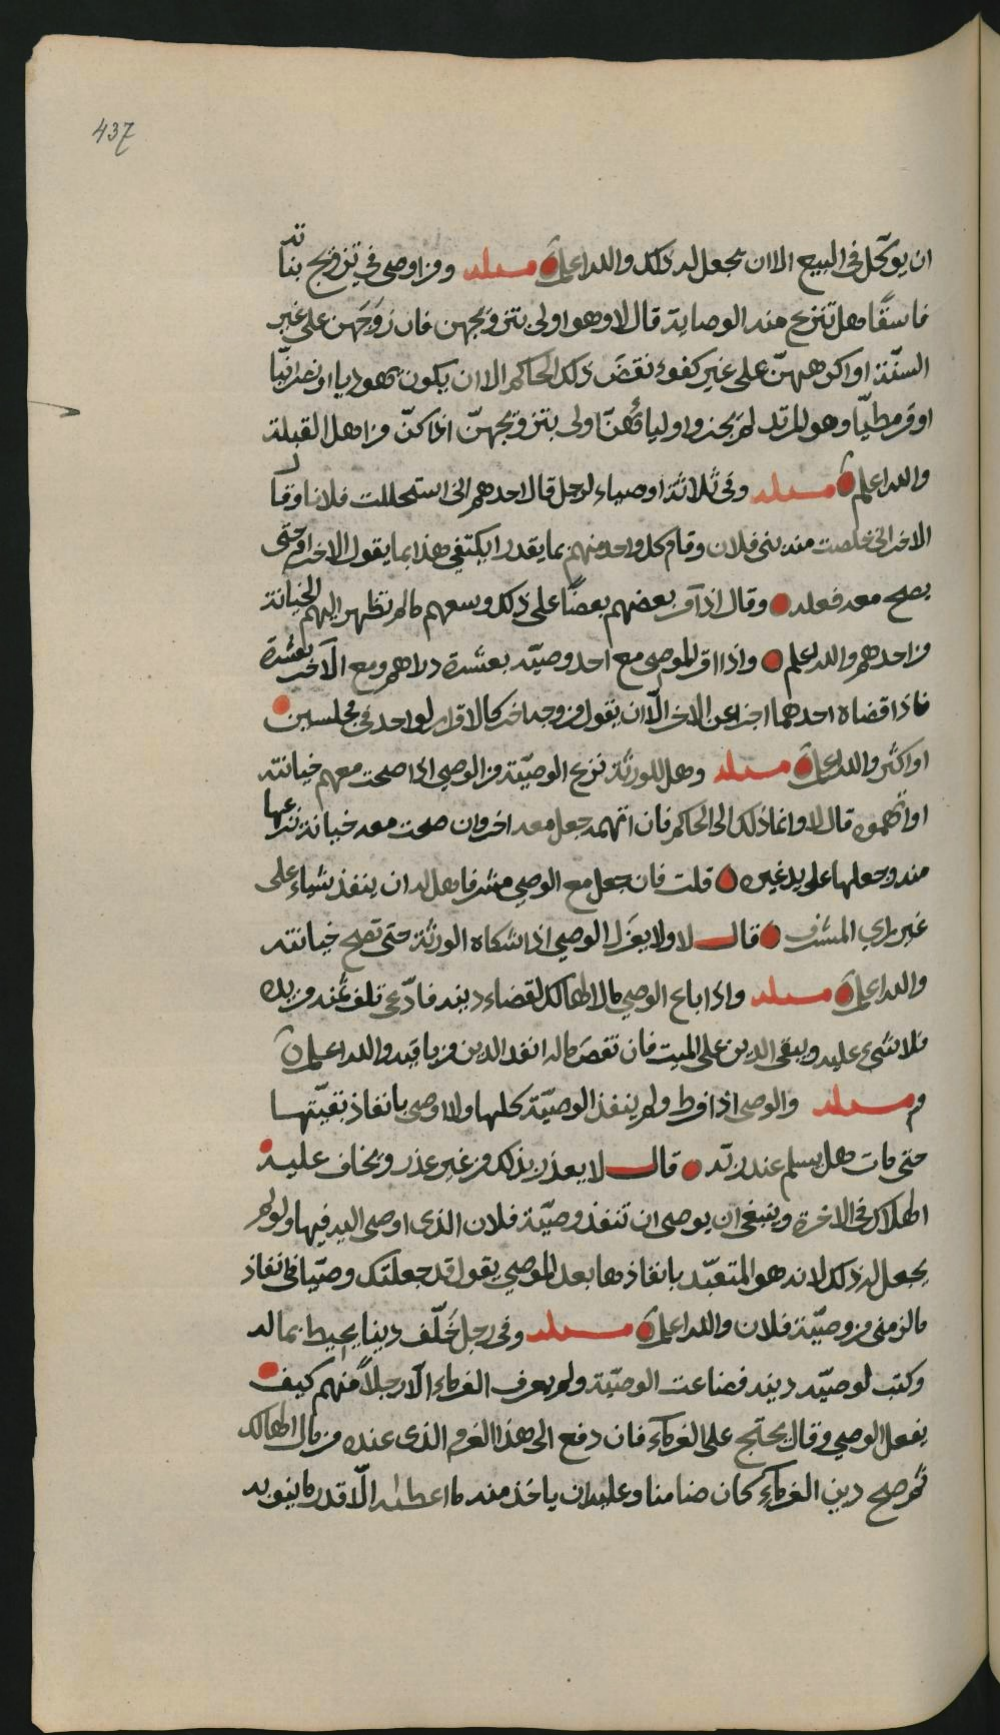 437
ان يوكّل في البيع الا ان يجعل له ذلك والله اعلم مسئله ومن اوصى في تزويج بناته
فاسقًا هل تنزع منه الوصاية قال لا وهو اولى بتزويجهن فان زوّجهن على غير
السنّة او اكرههنّ على غير كفوء نقضَ ذلك الحاكم الا ان يكون يهوديا او نصرانيّا
او قرمطيّا وهو المرتد لم يجز واولياؤهنّ اولى بتزويجهنّ اذا كنّ من اهل القبلة
والله اعلم مسئله وفي ثلاثة اوصياء لرجل قال احدهم اني استحللت فلانا وقال
الاخر اني خلصت منه بني فلان وقام كل واحد منهم بما يقدر ايكتفي هذا بما يقول الاخر ام حتّى
يصح معه فعله وقال اذا امر بعضهم بعضًا على ذلك وسعهم ما لم تظهر اليهم الخيانة
من احدهم والله اعلم واذا اقر الموصي مع احد وصيّيه بعشرة دراهم ومع الآخر بعشرة
فاذا قضاه احدهما اجزا عن الاخر الّا ان يقول من وجه اخر كالاقرار لواحد في مجلسين
او اكثر والله اعلم مسئله وهل للورثة نزع الوصيّة من الوصي اذا صحت معهم خيانته
او اتهموه قال لا وانما ذلك الى الحاكم فان اتهمه جعل معه اخر وان صحت معه خيانة نزعها
منه وجعلها على يد غيره قلت فان جعل مع الوصي مشرفا هل له ان ينفذ شياء على
غير راي المشرف قال لا ولا يعزل الوصي اذا شكاه الورثة حتى تصح خيانته
والله اعلم مسئله واذا باع الوصي مالا لهالك لقضاء دينه فادّعى تلف ثمنه من يده
فلا شيء عليه ويبقى الدين على الميت فان نقصَ ماله انفد الدين من باقيه والله اعلم
مسئله والوصي اذا فرط ولم ينفذ الوصيّة كلها ولا اوصى بانفاذ بقيّتها
حتى مات هل يسلم عند ربّه قال لا يعذر بذلك من غير عذر ويخاف عليه
الهلاك في الاخرة وينبغي ان يوصى ان تنفذ وصيّة فلان الذي اوصى اليه فيها ولو لم
يجعل له ذلك لانه هو المتعبّد بانفاذها بعد الموصي يقول قد جعلتك وصيّا في نفاذ
ما لزمني من وصيّة فلان والله اعلم مسئله وفي رجل خلّف دينا يحيط بماله
وكتب لوصيّه دينه فضاعت الوصيّة ولم يعرف الغرماء الّا رجلاً منهم كيف
يفعل الوصي وقال يحتج على الغرماء فان دفع الى هذا الغريم الذي عنده من مال الهالك
ثم صح دين الغرماء كان ضامنا وعليه ان ياخذ منه ما اعطاه الّا قدر ما ينوبه